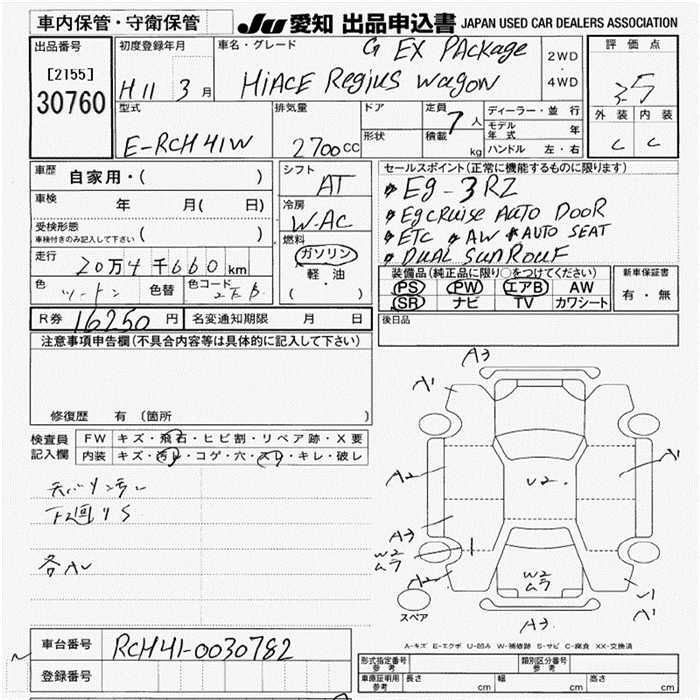 車内保管・守衛保管 JU 愛知 出品申込書 JAPAN USED CAR DEALERS ASSOCIATION
出品番号 [2155] 30760
初度登録年月 H11 3月
車名・グレード G EX PAckage
HiACE Regius wagon
2WD・4WD
評価点 3.5
外装 内装
C C
型式 E-RCH41W
排気量 2700cc
ドア
形状
定員 7人
積載 kg
ディーラー・並行
モデル年式 年
ハンドル 左・右
車歴 自家用・( )
車検 年 月( 日)
受検形態 ( )
車検付きのみ記入して下さい
走行 20万4千660km
色 ツートン 色替 色コード
シフト AT
冷房 W-AC
燃料 ガソリン
軽・油
( )
セールスポイント(正常に機能するものに限ります)
Eg-3RZ
Eg cruise AUTO DOOR
ETC AW AUTO SEAT
DUAL SUNROUF
装備品(純正品に限り○をつけてください)
PS PW エアB AW
SR ナビ TV カワシート
新車保証書
有・無
R券 16250円 名変通知期限 月 日
後日品
注意事項申告欄(不具合内容等は具体的に記入して下さい)
修復歴 有(箇所 )
検査員記入欄
FW キズ・飛石・ヒビ割・リペア跡・X要
内装 キズ・汚レ・コゲ・穴・スレ・キレ・破レ
下回りS
A3
A1
A2
A1
U2.
A3
W2
ムラ
A2
W2
ムラ
A1
A3
スペア
A-キズ E-エクボ U-凹み W-補修跡 S-サビ C-腐食 XX-交換済
車台番号 RCH41-0030782
登録番号
形式指定番号 参考
類別区分番号 参考
車庫証明用 参考 長さ cm 幅 cm 高さ cm